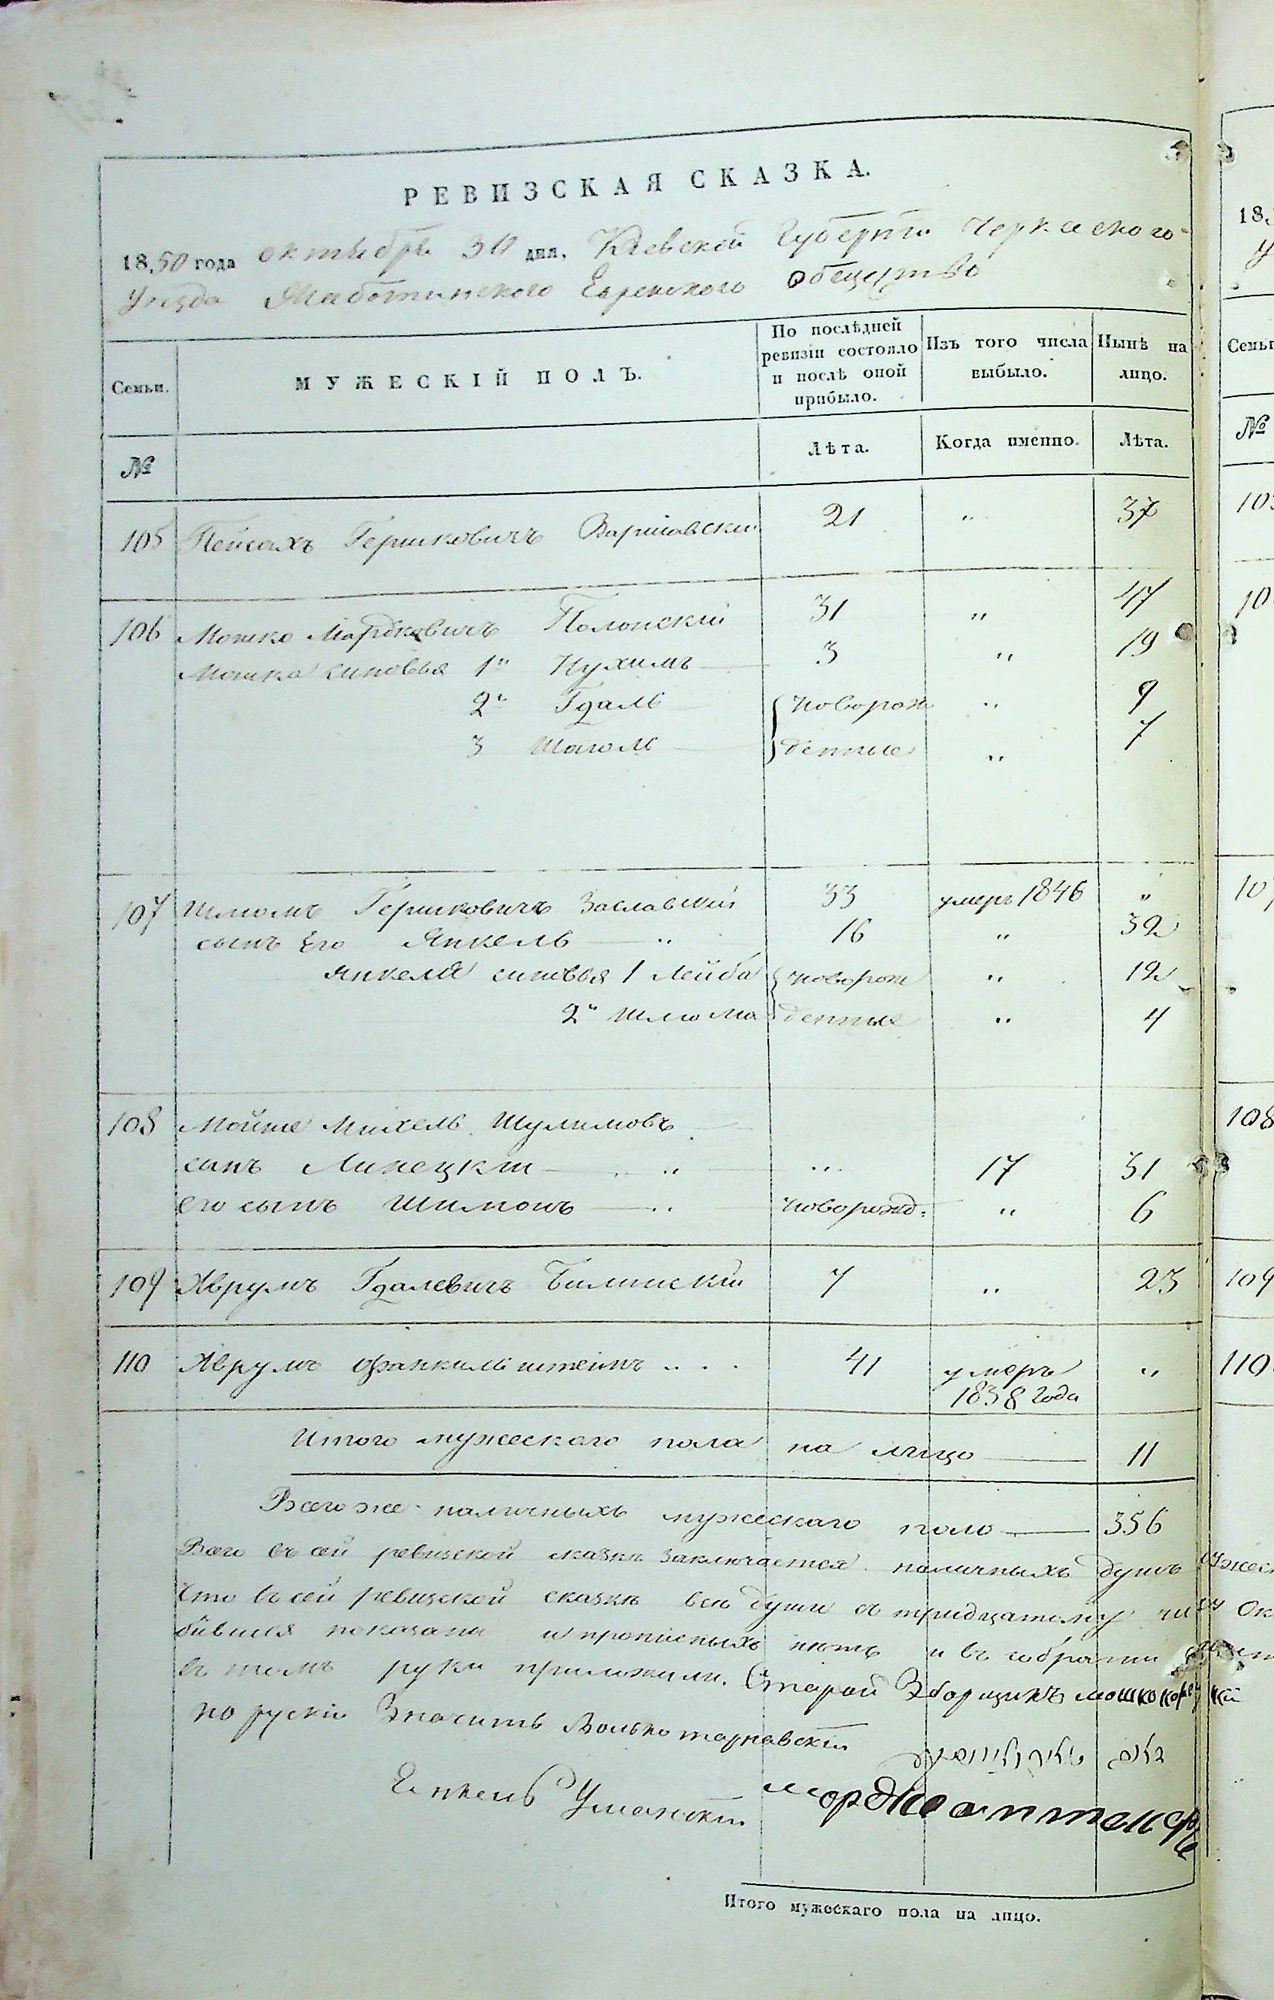 РЕВИЗСКАЯ СКАЗКА.
1850 года октября 30 дня, Кіевской Губерніи Черкаского
уезда Жаботинского Еврейского Общество
Семьи. МУЖЕСКІЙ ПОЛЪ. По послѣдней ревизіи состояло и послѣ оной прибыло. Изъ того числа выбыло. Нынѣ на лицо.
№ Лѣта. Когда именно. Лѣта.
105 Пейсахъ Гершковичъ Варшавский 21 " 37
106 Мошко Мордковичъ Полонский 31 " 47
Мошка сыновья 1й Нухимъ 3 " 19
2й Гдаль новорож " 9
3 Шаголь денные " 7
107 Шлиомъ Гершковичъ Заславский 33 умеръ 1846 "
сынъ Его Янкель " 16 " 32
Янкеля сыновья 1 Лейба новорож " 12
2й Шлиома денные " 4
108 Мойше Михель Шулимовъ
сынъ Линецкий " " 17 31
его сынъ Шимонъ " новорожд: " 6
109 Аврумъ Гдалевичъ Билинский 7 " 23
110 Аврумъ Финкильштейнъ 41 умеръ 1838 года "
Итого мужескаго пола на лицо 11
Всего же наличныхъ мужескаго пола 356
Всего въ сей ревизской сказкѣ заключается наличныхъ душъ
Что въ сей ревизской сказкѣ всѣ души съ тридцатому
показаны и прописныхъ нѣтъ и въ собрании
въ томъ руки приложили. Старой Зборщикъ Мошко
по руски Значитъ Волько Тарнавский
Янкель Уманский
Итого мужескаго пола на лицо.